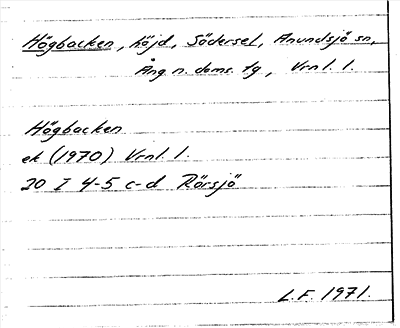 Högbacken, höjd, Södersel, Anundsjö sn,
Ång. n. doms. tg, Vrnl. l.
Högbacken
ek (1970) Vrnl. l.
20 I 4-5 c-d Rörsjö
L.F. 1971.